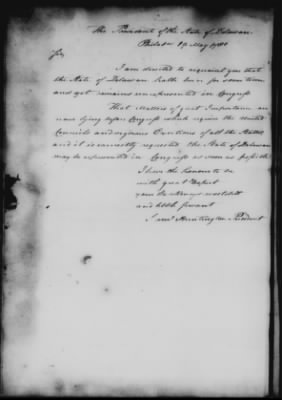 The President of the State of Delaware.
Philada 17 May 1780
Sir,
I am directed to acquaint you that
the State of Delaware hath been for some time
and yet remains unrepresented in Congress
That Matters of great Importance are
now lying before Congress which require the United
Councils and vigorous Exertions of all the States
and it is earnestly requested the State of Delaware
may be represented in Congress as soon as possible
I have the honour to be
with great Respect
your
and hble Servant
Saml Huntington President